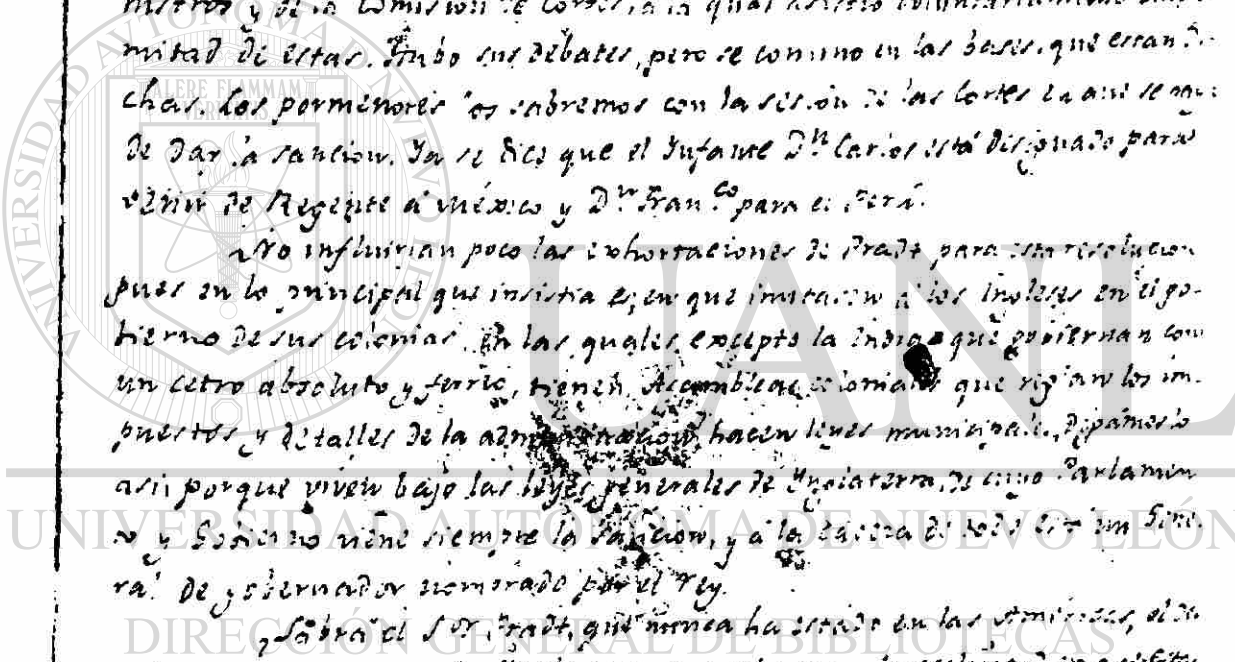 nistros y de la Comision de Cortes, a la qual asistió voluntariamente
mitad de estas. Hubo sus debates, pero se convino en las bases, que estan di-
chas. Los pormenores los sabremos con la sesion de las Cortes en que se
de dar la sancion. Ya se dice que el Infante Dn Carlos está designado para
venir de Regente á México y Dn Fran.co para el Perú.
No influirian poco las exhortaciones de Pradt para esta resolucion
pues en lo principal que insistia es, en que imitasen á los Ingleses en el go-
bierno de sus colonias. En las quales, excepto la India que gobiernan con
un cetro absoluto y ferreo, tienen Asambleas coloniales que reglan los im-
puestos, y detalles de la administracion, hacen leyes municipales, digámoslo
asi, porque viven bajo las leyes generales de Inglaterra, de cuyo Parlamen-
to y Gobierno viene siempre la sancion, y á la cabeza de todo está un Gene-
ral de gobernador nombrado por el Rey.
¿Sabrá el Sor. Pradt, que nunca ha estado en las Américas,
UNIVERSIDAD AUTÓNOMA DE NUEVO LEÓN
ALERE FLAMMAM
VERITATIS
UANL
UNIVERSIDAD AUTÓNOMA DE NUEVO LEÓN
DIRECCIÓN GENERAL DE BIBLIOTECAS